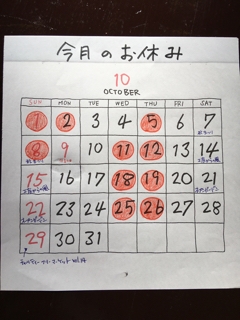 今月のお休み
10
OCTOBER
SUN MON TUE WED THU FRI SAT
1 2 3 4 5 6 7
8 9 10 11 12 13 14
15 16 17 18 19 20 21
22 23 24 25 26 27 28
29 30 31